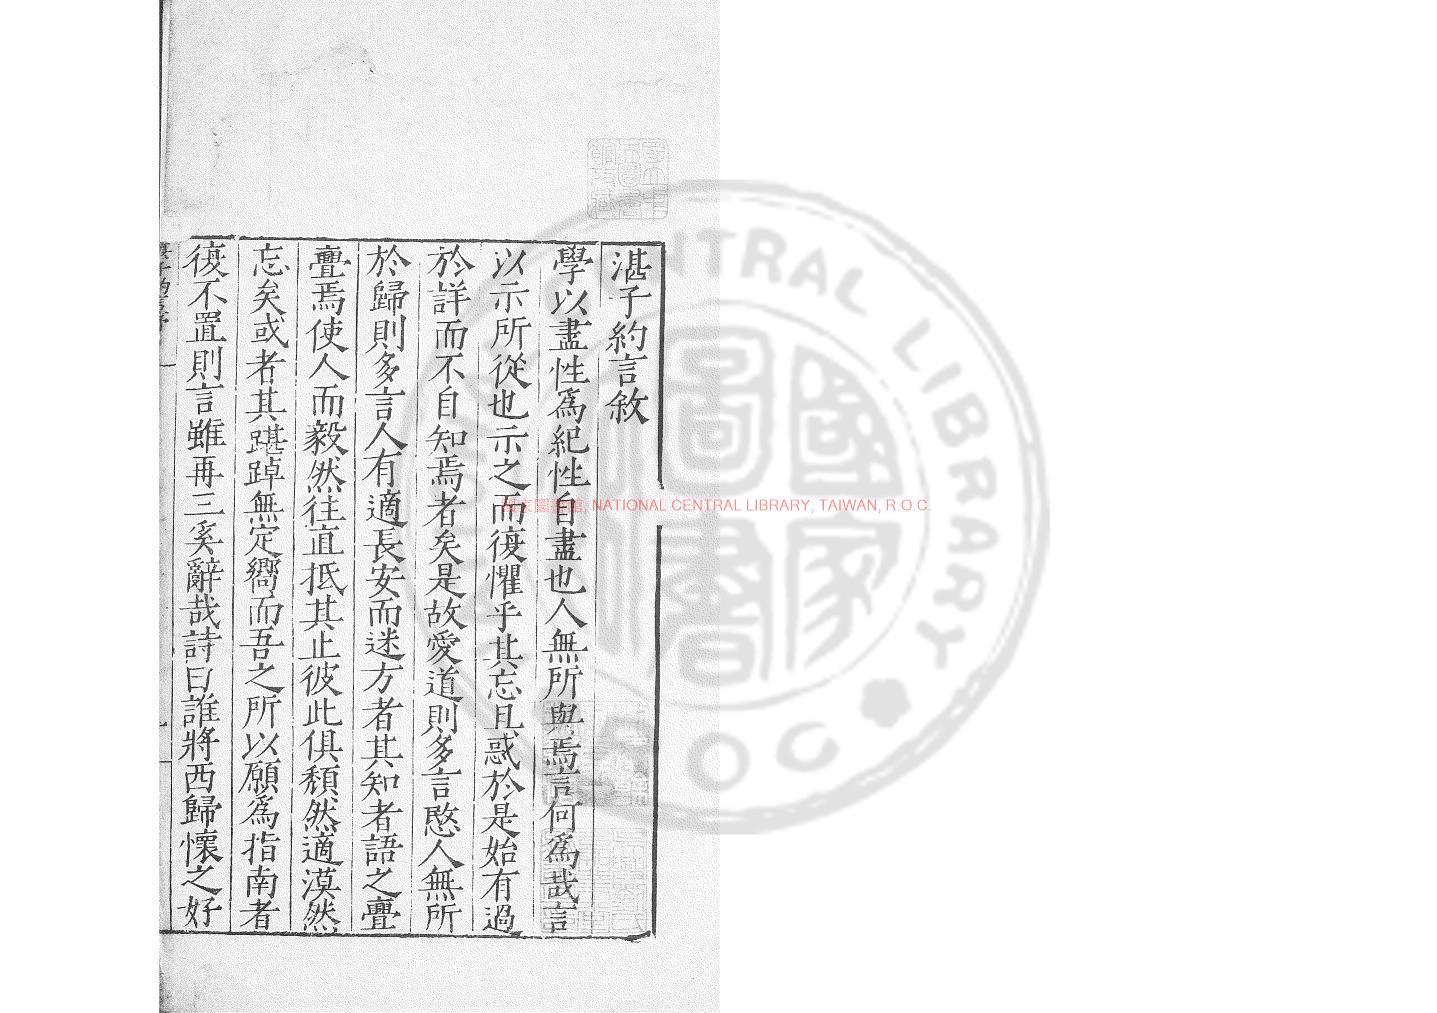 湛子約言敘
學以盡性爲紀性自盡也人無所與焉言何爲哉言
以示所從也示之而復懼乎其忘且惑於是始有過
於詳而不自知焉者矣是故愛道則多言愍人無所
於歸則多言人有適長安而迷方者其知者語之亹
亹焉使人而毅然往直抵其止彼此俱頹然適漠然
忘矣或者其踸踔無定嚮而吾之所以願爲指南者
復不置則言雖再三奚辭哉詩曰誰將西歸懷之好
國家圖書館, NATIONAL CENTRAL LIBRARY, TAIWAN, R.O.C.
NATIONAL CENTRAL LIBRARY
ROC
國家圖書